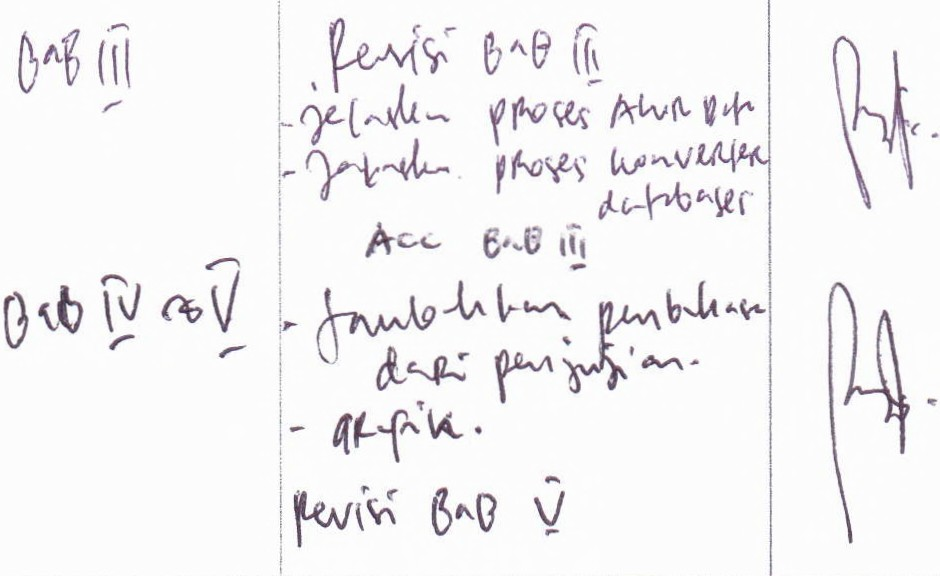 BAB III
Revisi BAB III
- jelaskan proses Alur Data
- Jelaskan proses konversi
database
Acc BAB III
BAB IV & V
- Tambahkan pembahasan
dari pengujian.
- grafik.
Revisi BAB V